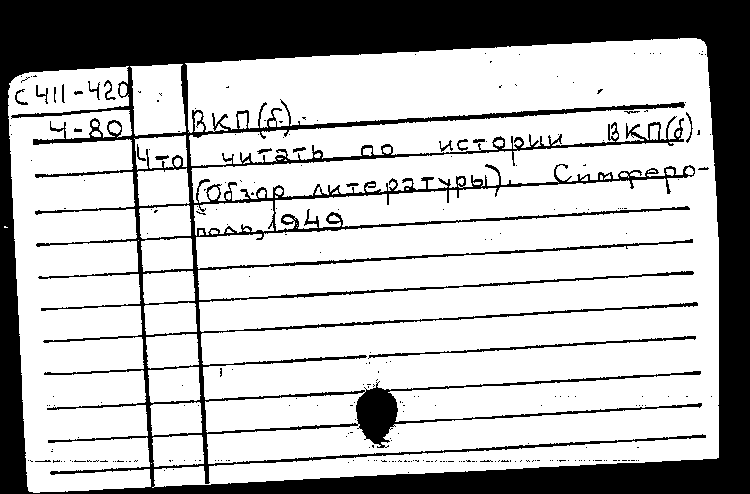 С 411-420
Ч-80 ВКП(б).
Что читать по истории ВКП(б).
(Обзор литературы). Симферо-
поль, 1949